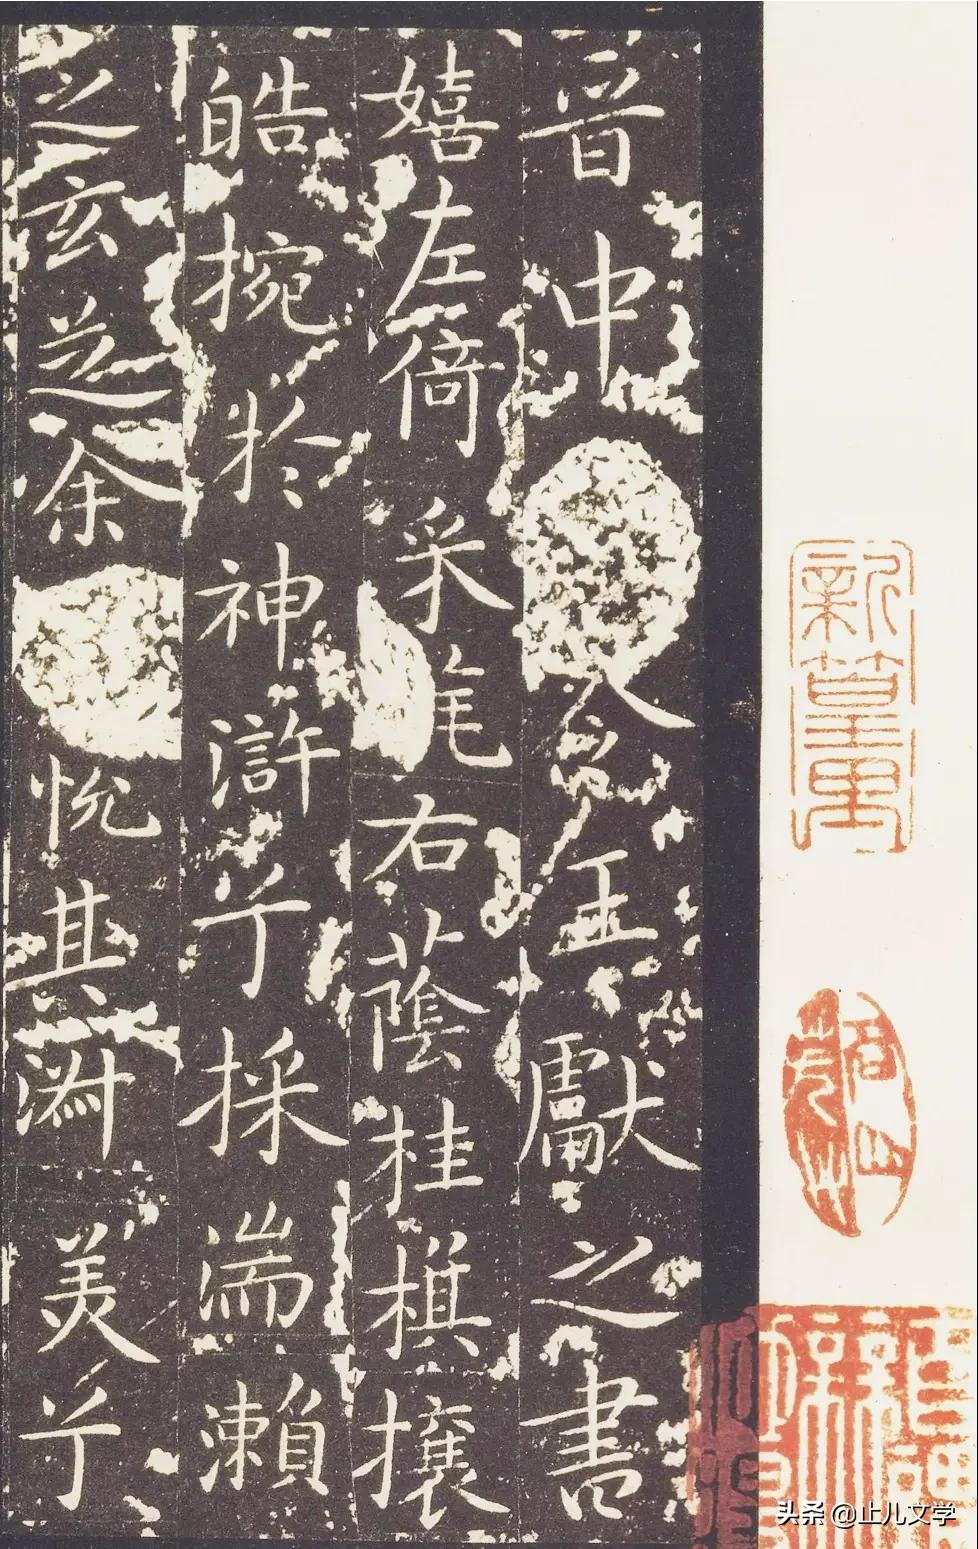 晉中令王獻之書
嬉左倚采旄右蔭桂旗攘
皓捥於神滸兮採湍瀨
之玄芝余悅其淑美兮
头条 @止儿文学